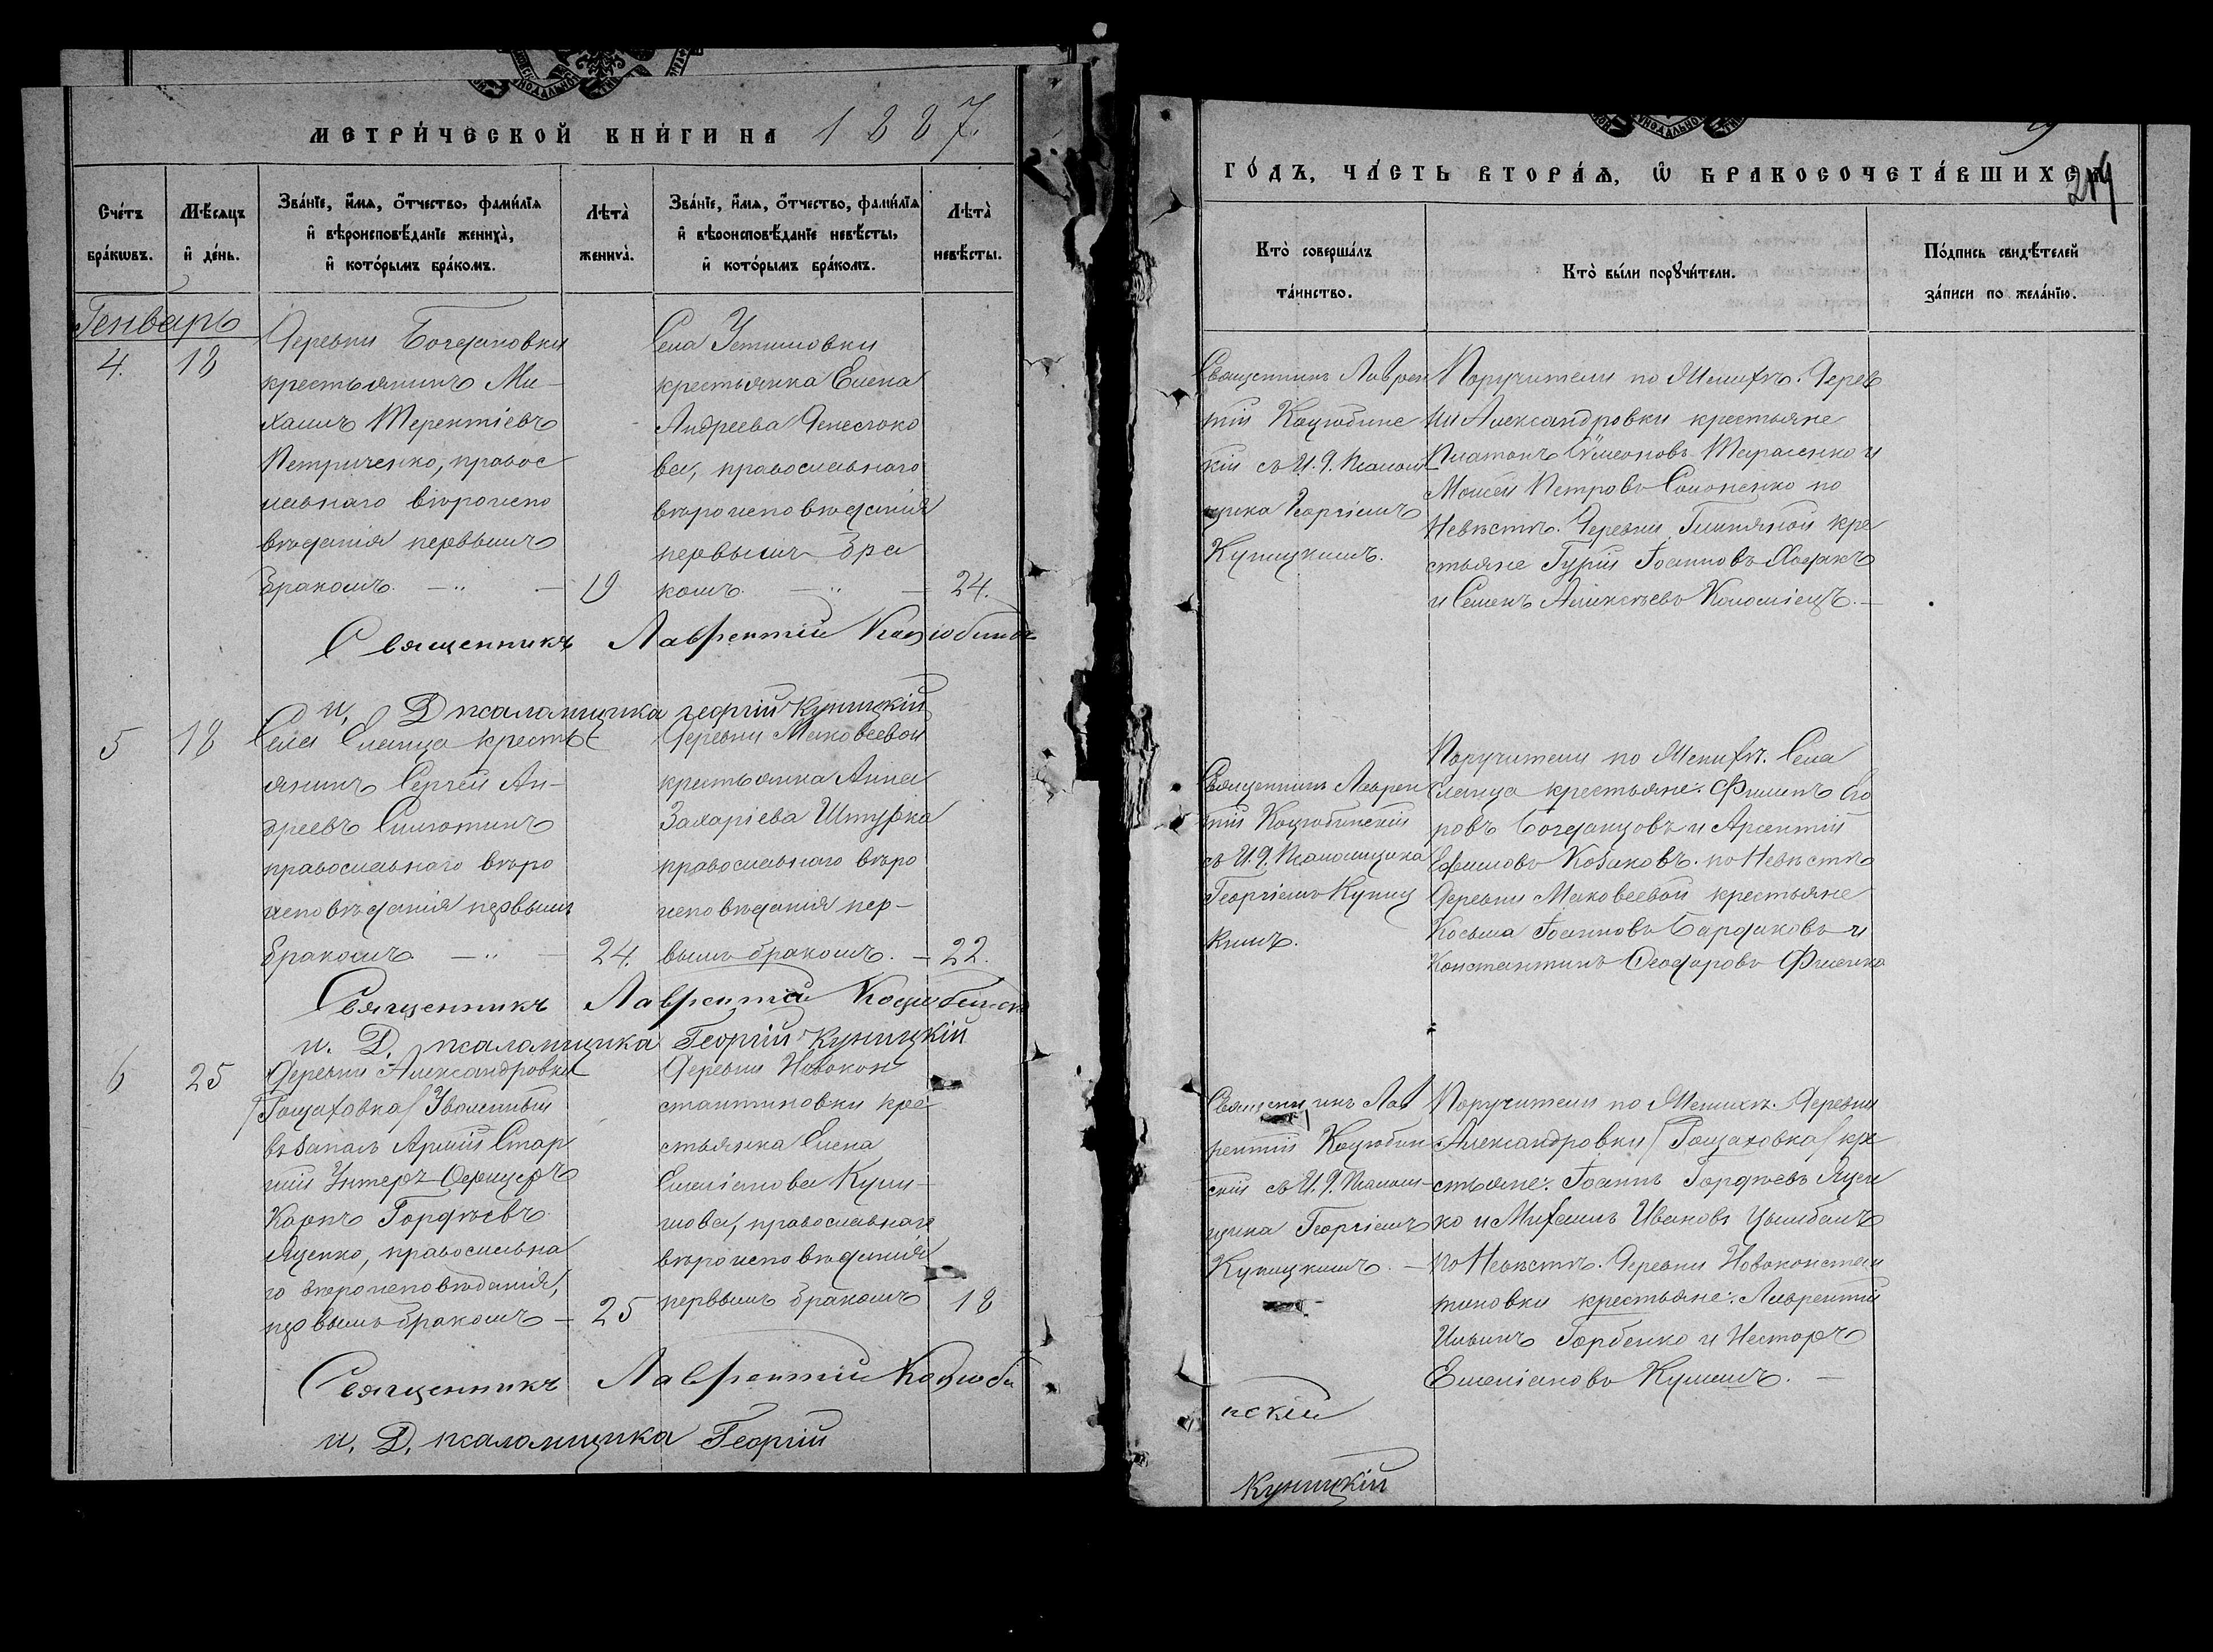 МЕТРИЧЕСКОЙ КНИГИ НА 1887
Счетъ браковъ.
Мѣсяцъ и день.
Званіе, имя, отчество, фамилія
и вѣроисповѣданіе жениха,
и которымъ бракомъ.
Лѣта жениха.
Званіе, имя, отчество, фамилія
и вѣроисповѣданіе невѣсты,
и которымъ бракомъ.
Лѣта невѣсты.
Генварь
4. 18
Деревни Богдановки
крестьянинъ Ми-
хаилъ Терентіевъ
Петриченко, правос
лавнаго вѣроиспо
вѣданія первымъ
бракомъ. 19
Села Устимовки
крестьянка Елена
Андреева
православнаго
вѣроисповѣданія
первымъ бра
комъ. 24.
Священникъ Лаврентій Коцюбинск
и. Д. псаломщика Георгій Куницкій
5 18
Села Еланца кресть
янинъ Сергей Ан-
дреевъ
православнаго вѣро
исповѣданія первымъ
бракомъ 24.
Деревни Маковеевой
крестьянка Анна
Захаріева Штурка
православнаго вѣро
исповѣданія пер-
вымъ бракомъ. 22.
Священникъ Лаврентій Коцюбинск
и. Д. псаломщика Георгій Куницкій
6 25
Деревни Александровки
/Гощаховка/ Уволенный
въ Запасъ Арміи Стар
шій Унтеръ-Офицеръ
Карпъ Гордѣевъ
Яценко, православна
го вѣроисповѣданія,
первымъ бракомъ 25
Деревни Новокон
стантиновки кре-
стьянка Елена
Емеліанова
православнаго
вѣроисповѣданія
первымъ бракомъ 18
Священникъ Лаврентій Коцюби
и. Д. псаломщика Георгій
ГОДЪ, ЧАСТЬ ВТОРАЯ, Ѡ БРАКОСОЧЕТАВШИХСЯ
Кто совершалъ
таинство.
Кто были поручители.
Подпись свидѣтелей
записи по желанію.
Священникъ Лаврен
тій Коцюбинс
кій съ И. Д. Псалом
щика Георгіемъ
Куницкимъ.
Поручители по Женихѣ. Дерев
ни Александровки крестьяне
Платонъ Сѵмеоновъ Тарасенко и
Моисей Петровъ Самоненко по
Невѣстѣ. Деревни Глиняной кре
стьяне Гурій Іоанновъ
и Семенъ Алексѣевъ Коломіецъ.
Священникъ Лаврен
тій Коцюбинскій
съ И. Д. Псаломщика
Георгіемъ Куниц
кимъ.
Поручители по Женихѣ. Села
Еланца крестьяне: Филипъ
Богданцовъ и Арсентій
Ефимовъ Козаковъ. по Невѣстѣ
Деревни Маковеевой крестьяне
Косьма Іоанновъ Бардаковъ и
Константинъ Ѳеодоровъ
Священникъ Лав
рентій Коцюбин
скій съ И. Д. Псалом-
щика Георгіемъ
Куницкимъ.
Поручители по Женихѣ. Деревни
Александровки /Гощаховка/ кре
стьяне: Іоаннъ Гордѣевъ Яцен
ко и Михаилъ Ивановъ Цымбалъ
по Невѣстѣ. Деревни Новоконстан
тиновки крестьяне: Лаврентій
Ильинъ Горбенко и Несторъ
Емеліановъ
нскій
Куницкій